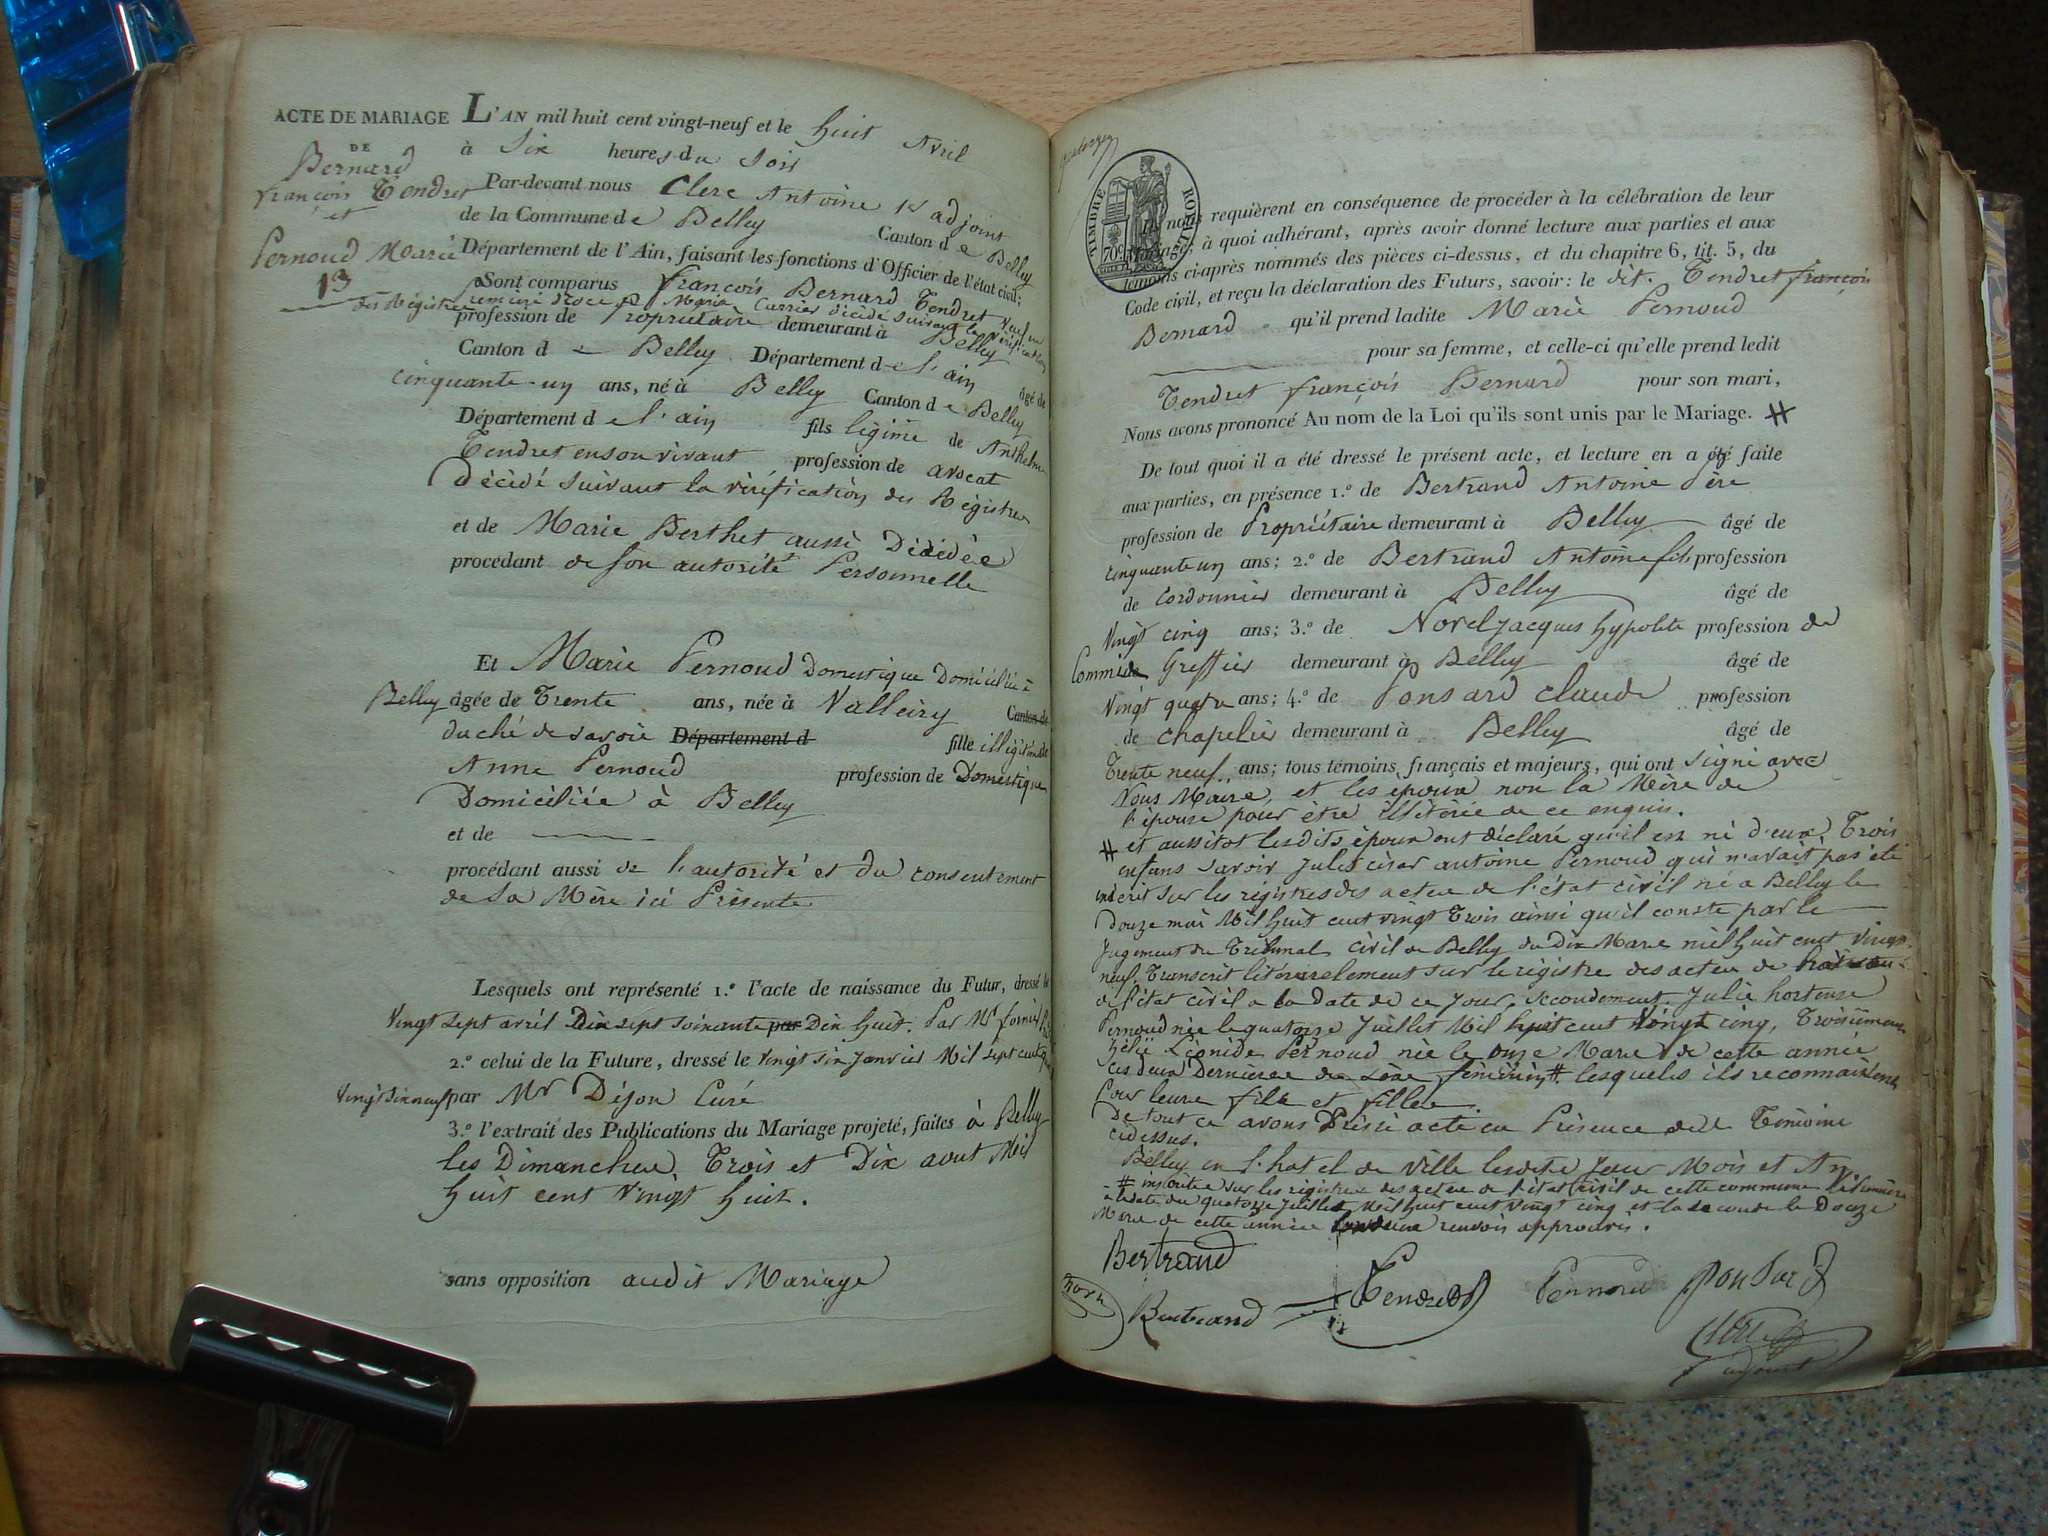 ACTE DE MARIAGE
DE
Bernard
françois Tendret
et
Pernoud Marie
13
L'AN mil huit cent vingt-neuf et le huit Avril
à Six heures du Soir
Par-devant nous Clerc Antoine 1er adjoint
de la Commune de Belley Canton de Belley
Département de l'Ain, faisant les fonctions d'Officier de l'état civil;
Sont comparus françois Bernard Tendret Veuf en
Maria Currier décédé suivant la vérification
des Régistres
profession de Propriétaire demeurant à Belley
Canton de Belley Département de l'ain âgé de
cinquante-un ans, né à Belley Canton de Belley
Département de l'ain fils légime de Anthelme
Tendret en son vivant profession de avocat
Décédé suivant la vérification des Régistres
et de Marie Berthet aussi Décédée
procédant de son autorité Personnelle
Et Marie Pernoud Domestique Domiciliée à
Belley âgée de Trente ans, née à Valleiry Canton de
duché de savoie Département d fille illégitime de
Anne Pernoud profession de Domestique
Domiciliée à Belley
et de
procédant aussi de l'autorité et du consentement
de Sa Mère ici Présente
Lesquels ont représenté 1.º l'acte de naissance du Futur, dressé le
Vingt sept avril Dix sept soixante par Dix huit. Par Mr
2.º celui de la Future, dressé le vingt six Janvier Mil sept cent
par Mr Déjon Curé
3.º l'extrait des Publications du Mariage projeté, faites à Belley
les Dimanches Trois et Dix aout Mil
huit cent Vingt huit.
sans opposition audit Mariage
TIMBRE ROYAL
70c
nous requièrent en conséquence de procéder à la célébration de leur
mariage; à quoi adhérant, après avoir donné lecture aux parties et aux
témoins ci-après nommés des pièces ci-dessus, et du chapitre 6, tit. 5, du
Code civil, et reçu la déclaration des Futurs, savoir: le dit. Tendret françois
Bernard qu'il prend ladite Marie Pernoud
pour sa femme, et celle-ci qu'elle prend ledit
Tendret françois Bernard pour son mari,
Nous avons prononcé Au nom de la Loi qu'ils sont unis par le Mariage. #
De tout quoi il a été dressé le présent acte, et lecture en a été faite
aux parties, en présence 1.º de Bertrand Antoine Père
profession de Propriétaire demeurant à Belley âgé de
cinquante un ans; 2.º de Bertrand Antoine fils profession
de Cordonnier demeurant à Belley âgé de
Vingt cinq ans; 3.º de Norel jacques hypolite profession de
Commis Greffier demeurant à Belley âgé de
Vingt quatre ans; 4.º de Ponsard claude profession
de chapelier demeurant à Belley âgé de
Trente neuf ans; tous témoins français et majeurs, qui ont signé avec
Nous Maire, et les époux non la Mère de
l'épouse pour être illétérée de ce enquis.
# et aussitot lesdits époux ont déclaré qu'il est né d'eux, Trois
enfans savoir Jules césar antoine Pernoud qui n'avait pas été
inscrit sur les régistres des actes de l'état civil né a Belley le
Douze mai Mil huit cent vingt Trois ainsi qu'il conste par le
Jugement du Tribunal civil de Belley du Dix Mars mil huit cent vingt
neuf. Transcrit litérarelement sur le régistre des actes de
de l'état civil a la date de ce jour, secondement. Julie hortense
Pernoud née le quatorze Juillet Mil huit cent vingt cinq, Troisièmement
Zélie Léonide Pernoud née le onze Mars de cette année
ces deux Dernières du sexe féminin # lesquels ils reconnaissent
Pour leurs fils et filles.
De tout ce avons Dressé acte en Présence des Témoins
cidessus.
Belley en l'hotel de Ville lesdits Jour Mois et An
# inscrites sur les régistres des actes de l'état civil de cette commune la première
à la date du quatorze Juillet Mil huit cent vingt cinq et la seconde le Douze
Mars de cette année renvois approuvés.
Bertrand
Norel
Bertrand
Tendret
Pernoud
Ponsard
Clerc
adjoint